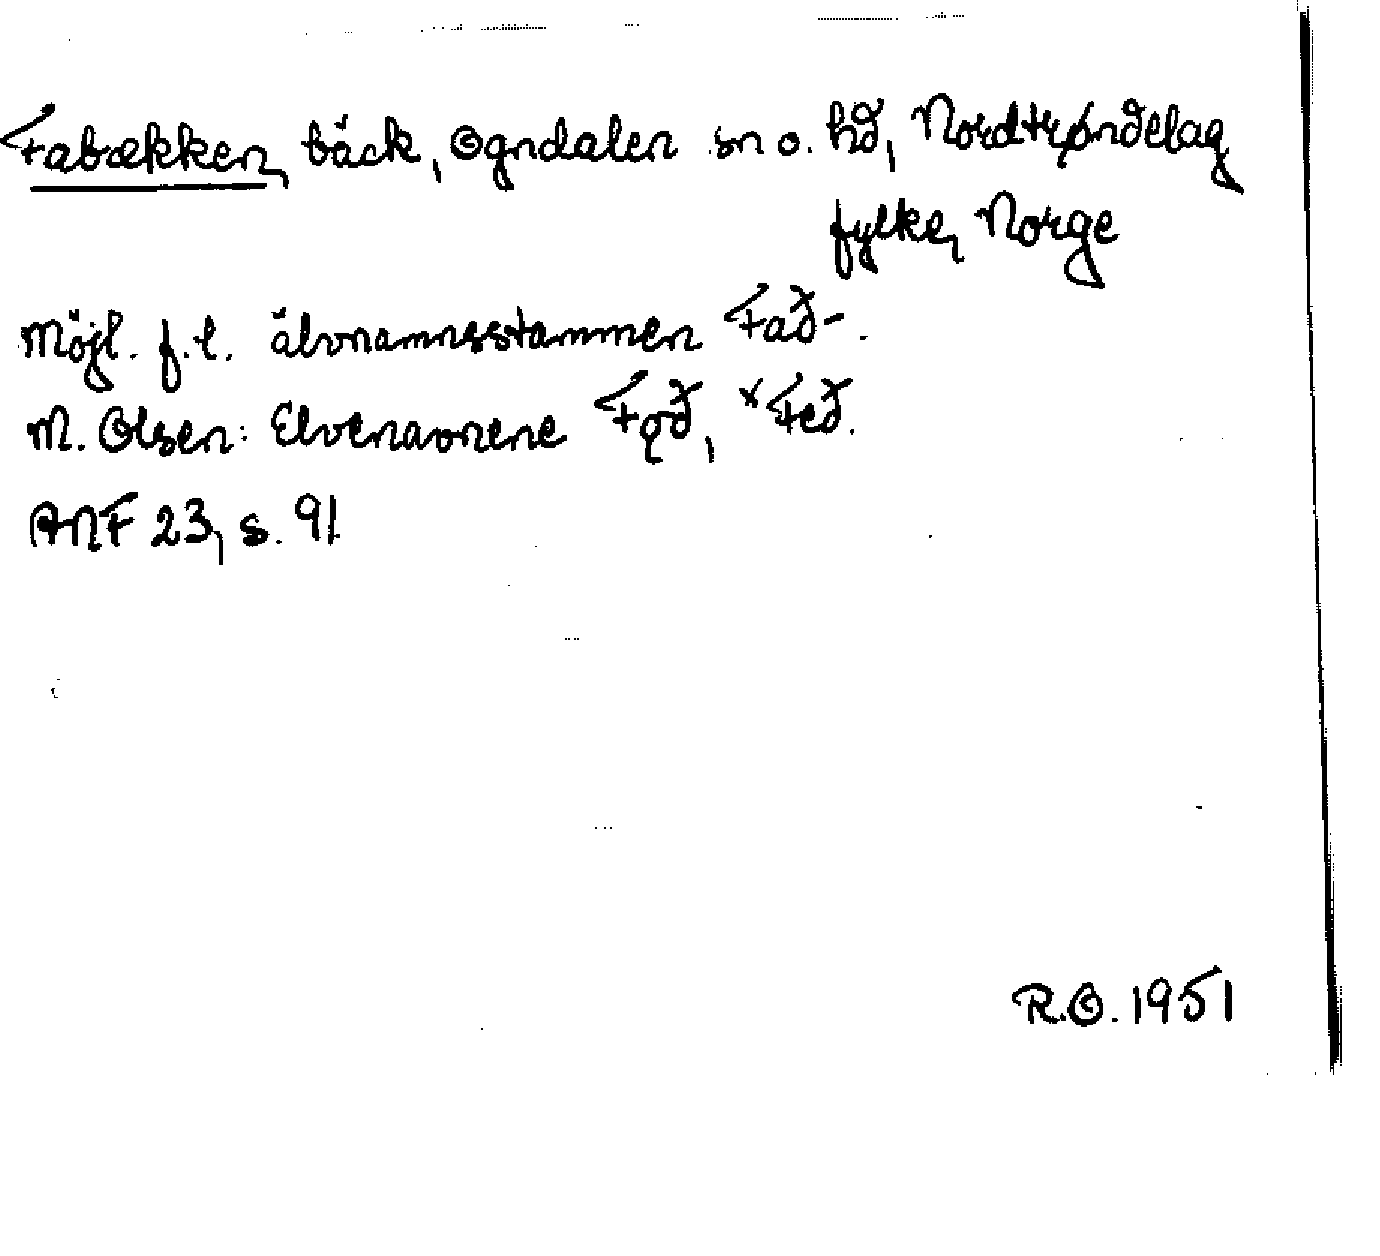 Fabækken, bäck, Ogndalen sn o. hd, Nordtrøndelag
fylke, Norge
Möjl. t. älvnamnsstammen Fað-.
M. Olsen: Elvenavnene Fǫð, *Feð.
ANF 23, s. 91
R.O. 1951